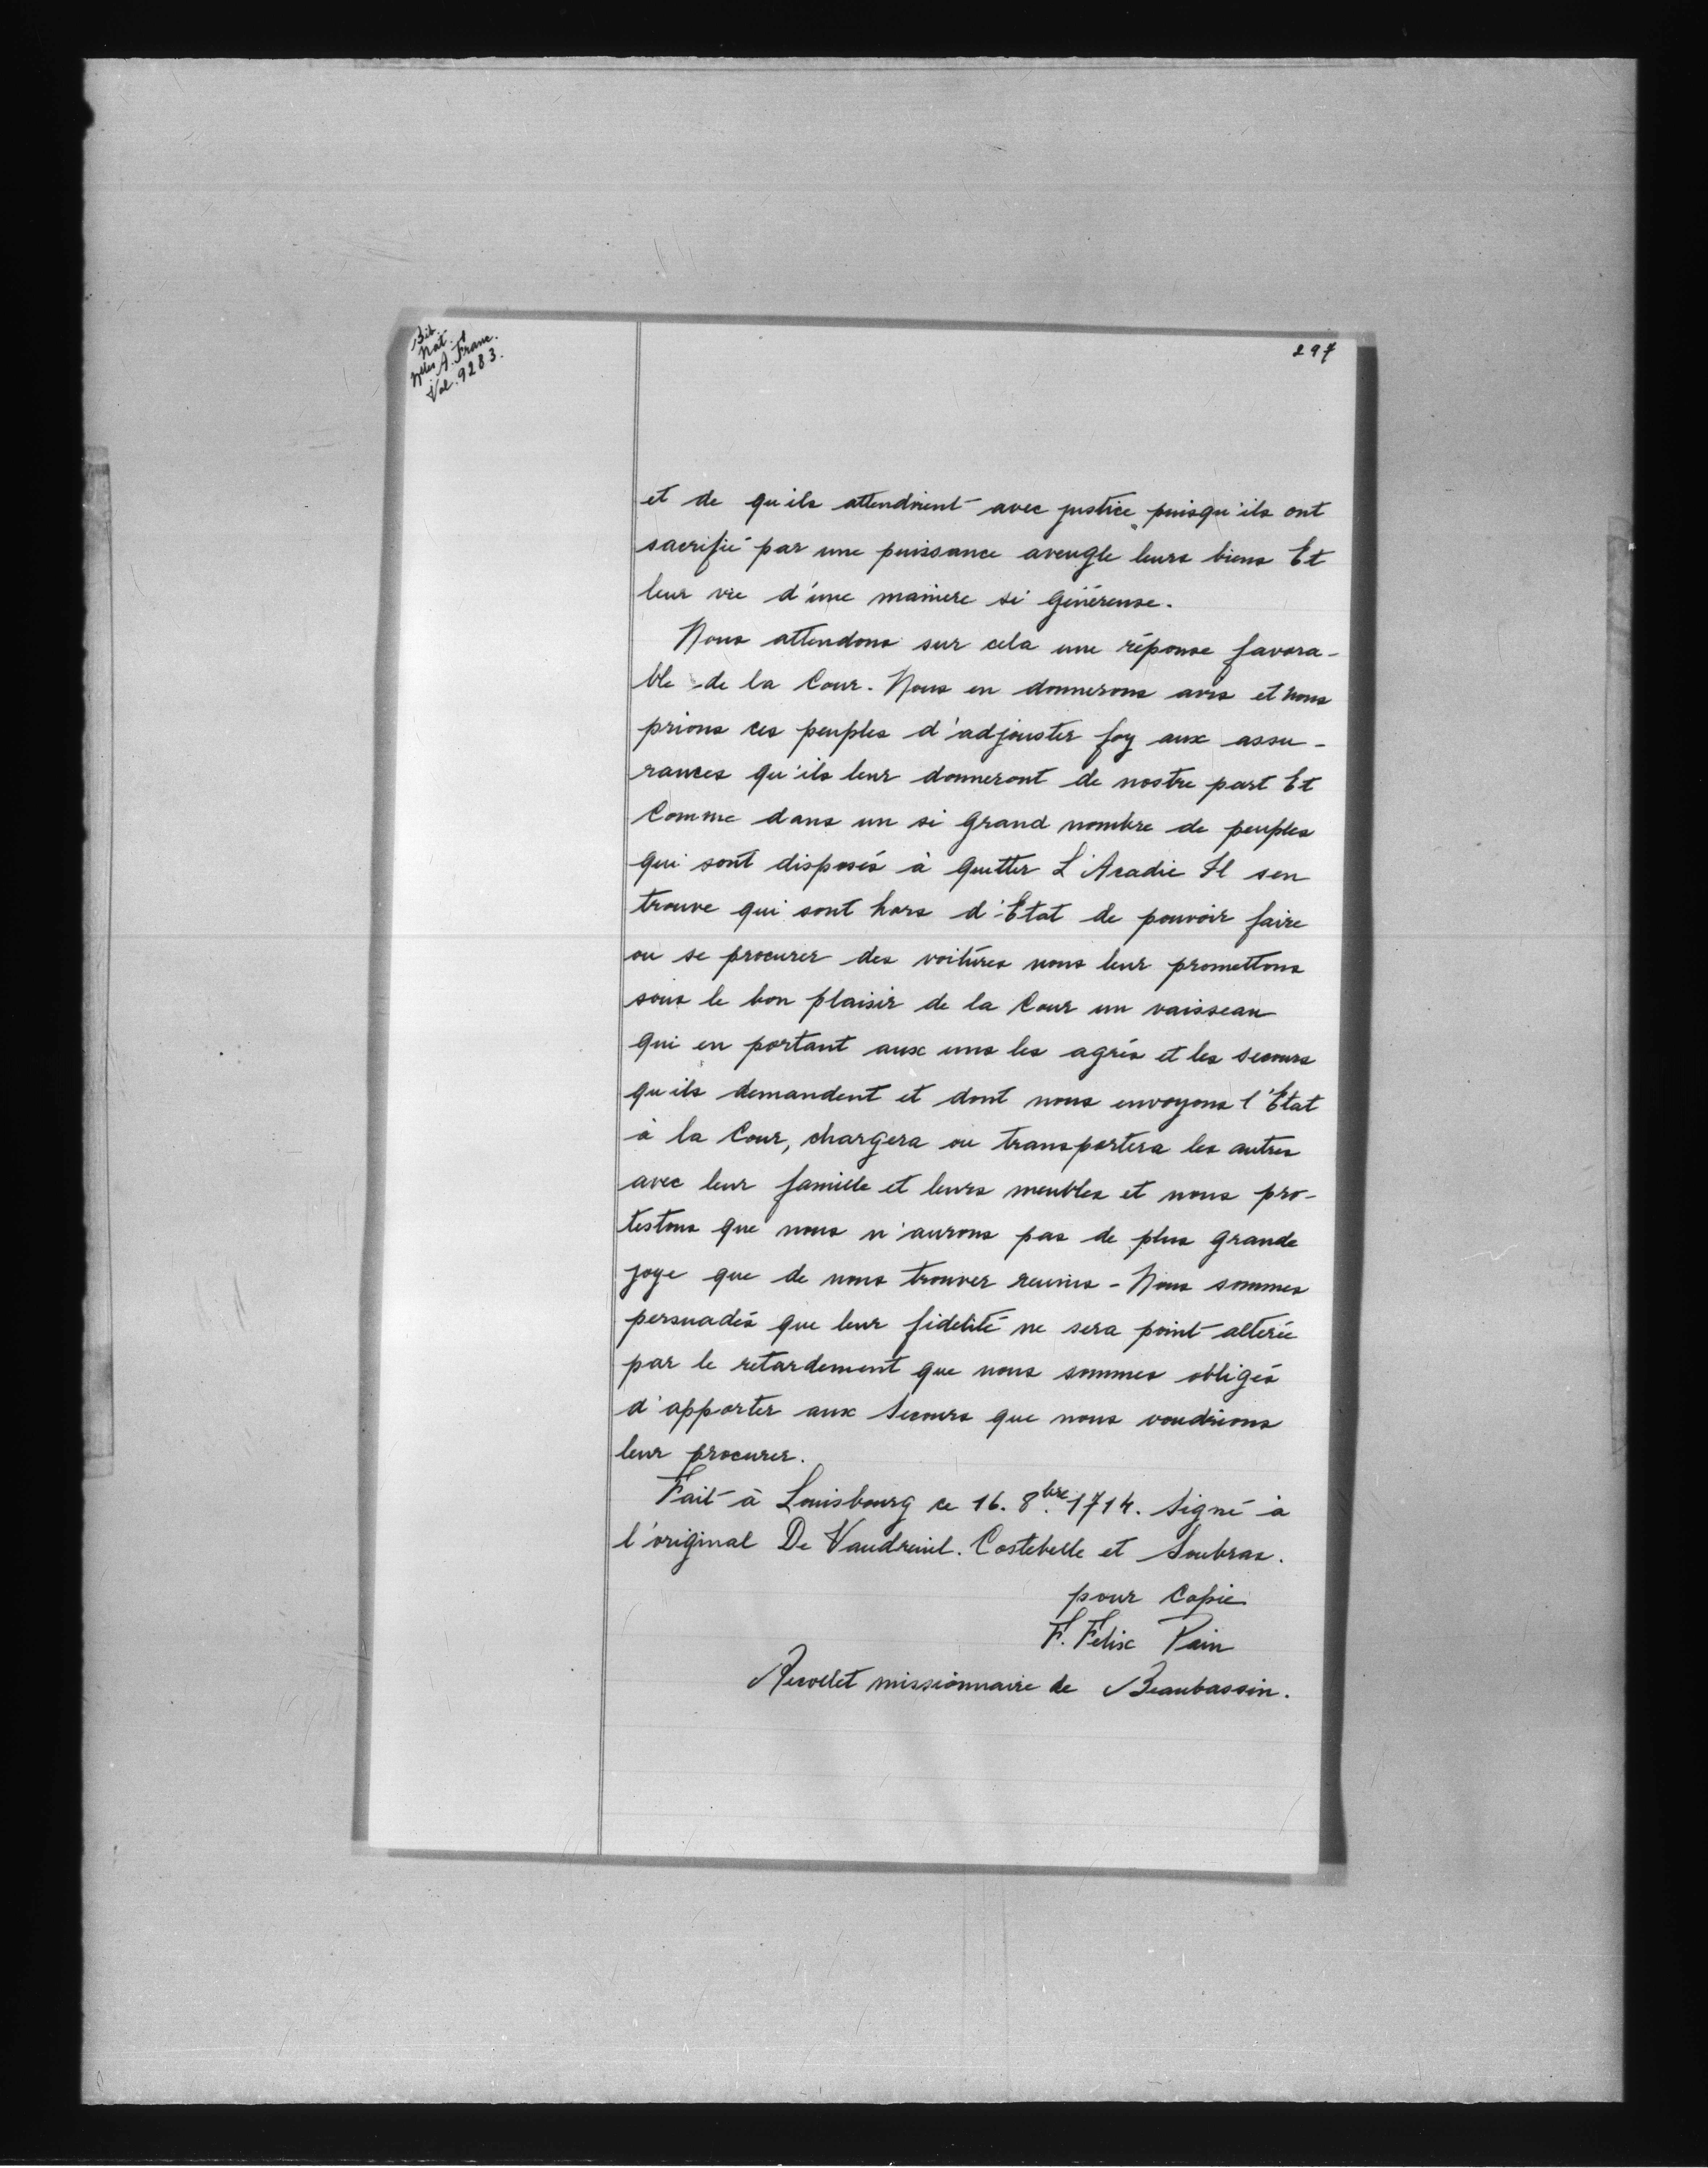 Bib.
Nat.
Nlles A. Franc.
Vol. 9283.
297
et de qu'ils attendoient avec justice puisqu'ils ont
sacrifié par une puissance aveugle leurs biens Et
leur vie d'une maniere si généreuse.
Nous attendons sur cela une réponse favora-
ble de la Cour. Nous en donnerons avis et nous
prions ces peuples d'adjouster foy aux assu-
rances qu'ils leur donneront de nostre part Et
Comme dans un si grand nombre de peuples
qui sont disposés à quitter L'Acadie Il sen
trouve qui sont hors d'Etat de pouvoir faire
ou se procurer des voitures nous leur promettons
sous le bon plaisir de la Cour un vaisseau
qui en portant aux uns les agrés et les secours
qu'ils demandent et dont nous envoyons l'Etat
à la Cour, chargera ou transportera les autres
avec leur famille et leurs meubles et nous pro-
testons que nous n'aurons pas de plus grande
joye que de nous trouver reunis - Nous sommes
persuadés que leur fidelité ne sera point alterée
par le retardement que nous sommes obligés
d'apporter aux Secours que nous voudrions
leur procurer.
Fait à Louisbourg ce 16. 8bre. 1714. Signé à
l'original De Vaudreuil. Costebelle et Soubras.
pour Copie
F. Felix Pain
Recollet missionnaire de Beaubassin.